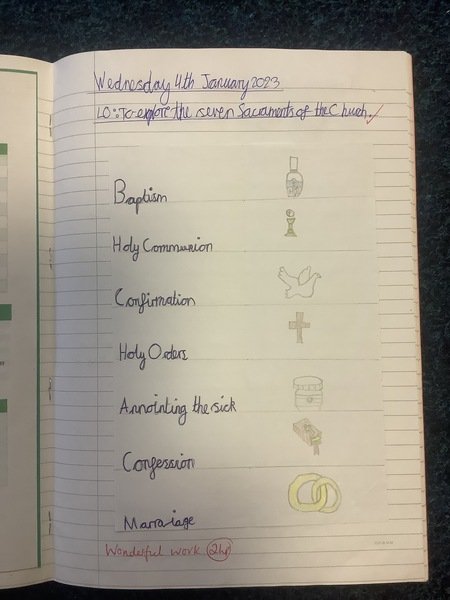 Wednesday 4th January 2023
LO: To explore the seven Sacraments of the Church.
Baptism
Holy Communion
Confirmation
Holy Orders
Annointing the sick
Confession
Marraiage
Wonderful work 2hp